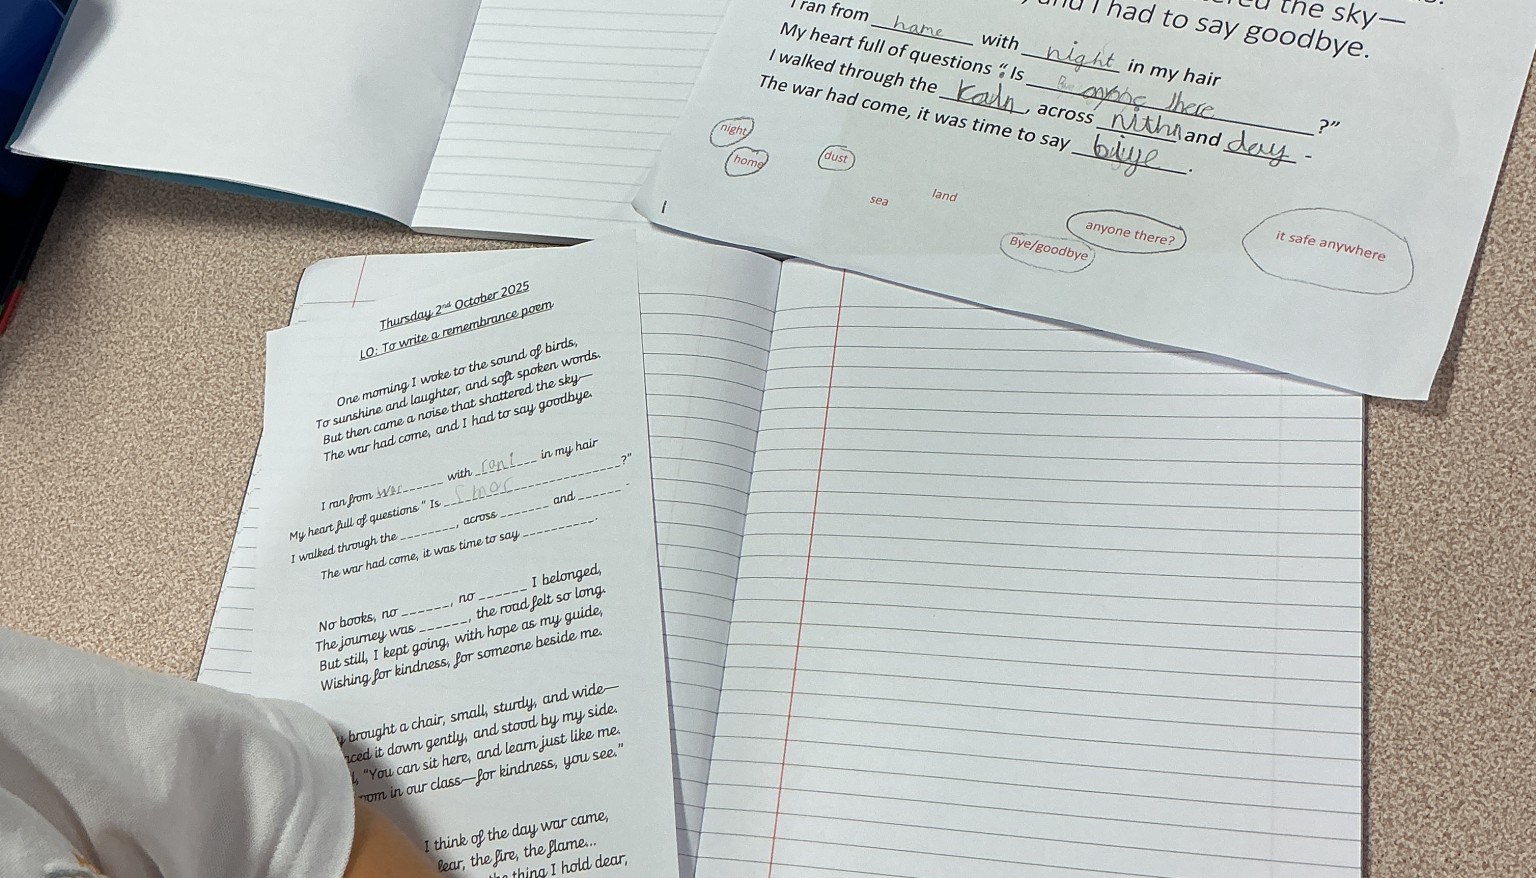 ered the sky—
and I had to say goodbye.
I ran from home with night in my hair
My heart full of questions “Is anyone there ?”
I walked through the, across and day.
The war had come, it was time to say.
night
home
dust
sea
land
anyone there?
Bye/goodbye
it safe anywhere
Thursday 2nd October 2025
LO: To write a remembrance poem
One morning I woke to the sound of birds,
To sunshine and laughter, and soft spoken words.
But then came a noise that shattered the sky—
The war had come, and I had to say goodbye.
I ran from war with rani in my hair
My heart full of questions “ Is smoc ?”
I walked through the ______, across ______ and ______.
The war had come, it was time to say ______.
No books, no ______, no ______ I belonged,
The journey was ______, the road felt so long.
But still, I kept going, with hope as my guide,
Wishing for kindness, for someone beside me.
y brought a chair, small, sturdy, and wide—
aced it down gently, and stood by my side.
“You can sit here, and learn just like me.
oom in our class—for kindness, you see.”
I think of the day war came,
fear, the fire, the flame...
the thing I hold dear,